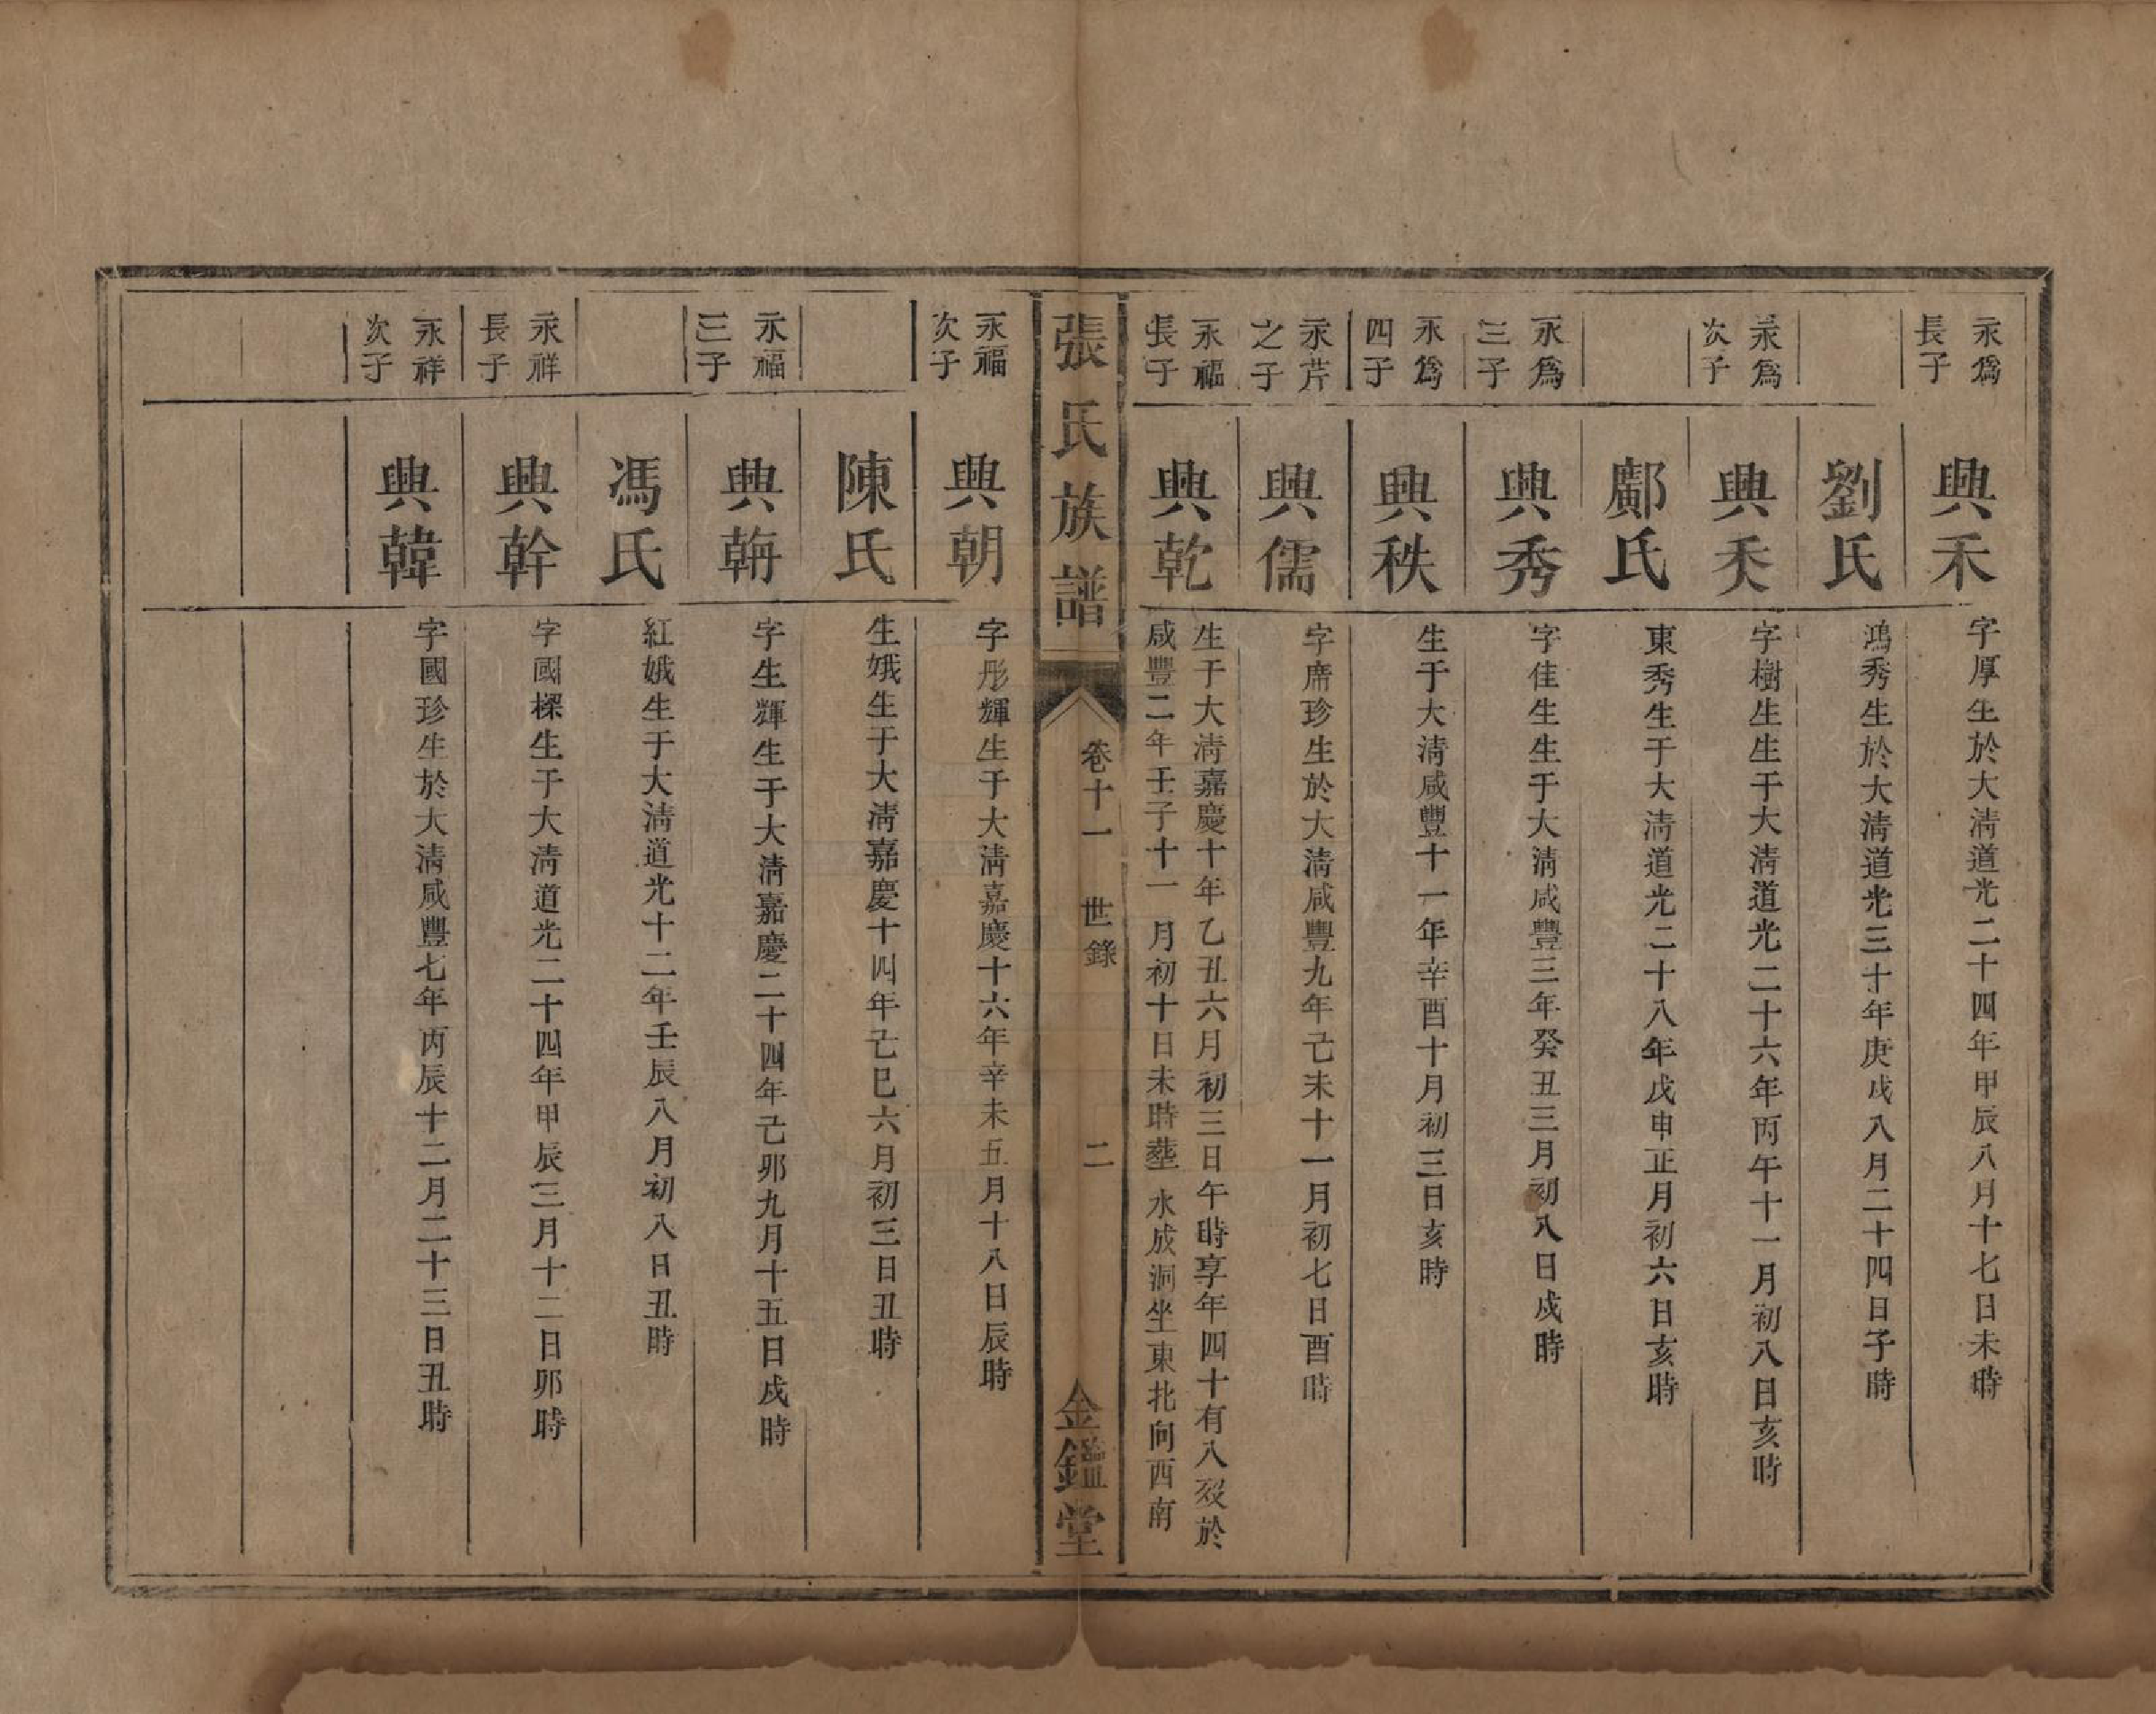 永爲長子
興禾
字厚生於大淸道光二十四年甲辰八月十七日未時
劉氏
鴻秀生於大淸道光三十年庚戌八月二十四日子時
永爲次子
興天
字樹生生于大淸道光二十六年丙午十一月初八日亥時
鄺氏
東秀生于大淸道光二十八年戊申正月初六日亥時
永爲三子
興秀
字佳生生于大淸咸豐三年癸丑三月初八日戌時
永爲四子
興秩
生于大淸咸豐十一年辛酉十月初三日亥時
永芹之子
興儒
字席珍生於大淸咸豐九年己未十一月初七日酉時
永福長子
興乾
生于大淸嘉慶十年乙丑六月初三日午時享年四十有八歿於
咸豐二年壬子十一月初十日未時塟水成洞坐東北向西南
張氏族譜
卷十一 世錄
二
金鑑堂
永福次子
興朝
字彤輝生于大淸嘉慶十六年辛未五月十八日辰時
陳氏
生娥生于大淸嘉慶十四年己巳六月初三日丑時
永福三子
興䎐
字生輝生于大淸嘉慶二十四年己卯九月十五日戌時
馮氏
紅娥生于大淸道光十二年壬辰八月初八日丑時
永祥長子
興幹
字國樑生于大淸道光二十四年甲辰三月十二日卯時
永祥次子
興韓
字國珍生於大淸咸豐七年丙辰十二月二十三日丑時